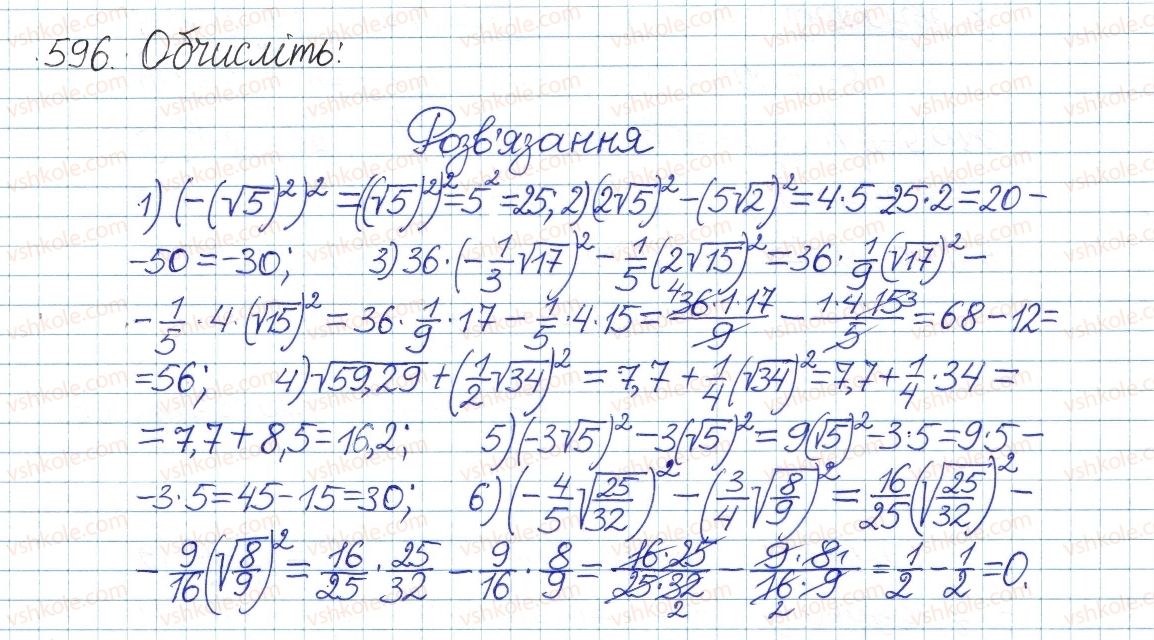 596. Обчисліть:
Розв'язання
1) (-(√5)²)² = ((√5)²)² = 5² = 25; 2) (2√5)² - (5√2)² = 4·5 - 25·2 = 20 -
- 50 = -30; 3) 36·(-1/3√17)² - 1/5(2√15)² = 36·1/9(√17)² -
- 1/5·4·(√15)² = 36·1/9·17 - 1/5·4·15 = 36·1·17/9 - 1·4·15/5 = 68 - 12 =
= 56; 4) √59,29 + (1/2√34)² = 7,7 + 1/4(√34)² = 7,7 + 1/4·34 =
= 7,7 + 8,5 = 16,2; 5) (-3√5)² - 3(√5)² = 9(√5)² - 3·5 = 9·5 -
- 3·5 = 45 - 15 = 30; 6) (-4/5√25/32)² - (3/4√8/9)² = 16/25(√25/32)² -
- 9/16(√8/9)² = 16/25·25/32 - 9/16·8/9 = 16·25/25·32 - 9·8/16·9 = 1/2 - 1/2 = 0.